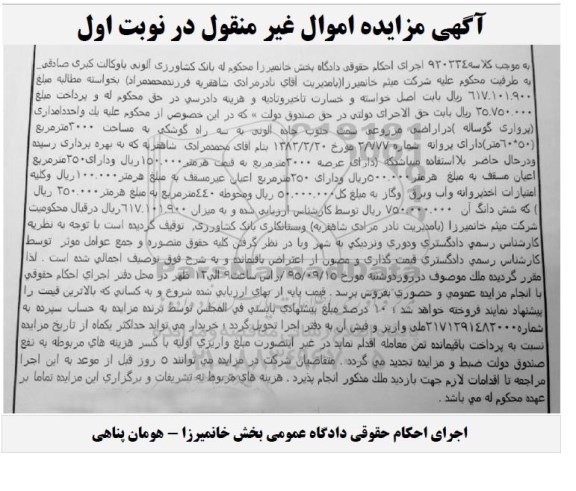 آگهی مزایده اموال غیر منقول در نوبت اول
به موجب کلاسه۹۲۰۲۳۴ اجرای احکام حقوقی دادگاه بخش خانمیرزا محکوم له بانک کشاورزی آلونی باوکالت کبری صادقی_
به طرفیت محکوم علیه شرکت میثم خانمیرزا(بامدیریت آقای نادرمرادی شاهقریه فرزندمحمدمراد) بخواسته مطالبه مبلغ
۶۱۷.۱۰۱.۹۰۰ ریال بابت اصل خواسته و خسارت تاخیروتادیه و هزینه دادرسی در حق محکوم له و پرداخت مبلغ
۳۵.۷۵۰.۰۰۰ ریال بابت حق الاجرای دولتی در حق صندوق دولت » که در این خصوص از محکوم علیه یك واحددامداری
(پرواری گوساله )دراراضی مزروعی سمت جنوب جاده آلونی به سه راه گوشکی به مساحت ۳۰۰۰مترمربع
(۵۰*۶۰متر)دارای پروانه شماره۲/۷۷۷۰ مورخ ۱۳۸۳/۳/۲۰ بنام آقای محمدمرادی شاهقریه که به بهره برداری رسیده
ودرحال حاضر بلااستفاده میباشدکه (دارای عرصه ۳۰۰۰مترمربع به قیمت هرمتر۱۵۰.۰۰۰ریال ودارای۲۵۰مترمربع
اعیان مسقف به مبلغ هرمتر۵۰۰.۰۰۰ریال ودارای ۲۵۰مترمربع اعیان غیرمسقف به مبلغ هرمتر۱۰۰.۰۰۰ریال وکلیه
امتیازات اخذپروانه وآب وبرق وگاز به مبلغ کل۵۰.۰۰۰.۰۰۰ ریال ومحوطه ۴۴۰مترمربع به مبلغ هرمتر۳۵۰.۰۰۰ ریال
) که شش دانگ آن ۷۵۰.۰۰۰.۰۰۰ ریال توسط کارشناس ارزیابی شده و به میزان ۶۱۷.۱۰۱.۹۰۰ریال درقبال محکومیت
شرکت میثم خانمیرزا (بامدیریت نادر مرادی شاهقریه) وبستانکاری بانک کشاورزی, توقیف گردیده است با توجه به نظریه
کارشناس رسمی دادگستری ودوری ونزدیکی به شهر وبا در نظر گرفتن کلیه حقوق متصوره و جمع عوامل موثر توسط
کارشناس رسمی دادگستری قیمت گذاری و مصون از اعتراض باقیمانده و به شرح فوق توصیف اجمالی شده است . لذا
مقرر گردیده ملك موصوف درروزدوشنبه مورخ ۹۵/۰۹/۱۵ از ساعت ۱۰الی۱۲ظهر در محل دفتر اجرای احکام حقوقی
با انجام مزایده عمومی و حضوری بفروش برسد . قیمت پایه از بهای ارزیابی شده شروع و به کسانی که بالاترین قیمت را
پیشنهاد نمایند فروخته خواهد شد ؛ ۱۰ درصد مبلغ پیشنهادی بایستی فی المجلس توسط برنده مزایده به حساب سپرده به
شماره۲۱۷۱۲۹۱۴۸۳۰۰۰ملی واریز و فیش آن به دفتر اجرا تحویل گردد ؛ خریدار می تواند حداکثر یکماه از تاریخ مزایده
نسبت به پرداخت باقیمانده ثمن معامله اقدام نماید در غیر اینصورت مبلغ واریزی اولیه با کسر هزینه های مربوطه به نفع
صندوق دولت ضبط و مزایده تجدید می گردد . متقاضیان شرکت در مزایده می توانند ۵ روز قبل از موعد به این اجرا
مراجعه تا اقدامات لازم جهت بازدید ملك مذکور انجام پذیرد . هزینه های مربوط به تشریفات و برگزاری این مزایده تماما بر
عهده محکوم له می باشد .
اجرای احکام حقوقی دادگاه عمومی بخش خانمیرزا – هومان پناهی